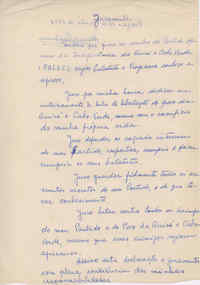 Juramento
Declaro que quero ser membro do Partido Afri-
cano da Independência da Guiné e Cabo Verde
(PAIGC), cujos Estatutos e Programa conheço e
aprovo.
Juro que minha haverei dedicar-me
inteiramente à luta de libertação do povo da
Guiné e Cabo Verde, mesmo com o sacrifício
da minha própria vida.
Juro defender os sagrados interesses
do meu Partido, respeitar, cumprir e fazer
cumprir os seus Estatutos.
Juro guardar fielmente todos os se-
gredos do meu Partido, e de que ti-
ver conhecimento.
Juro lutar contra todos os inimigos
do meu Partido e do Povo da Guiné e Cabo
Verde, mesmo que esses inimigos sejam
Assino esta declaração e juramento
com plena consciência das minhas
responsabilidades